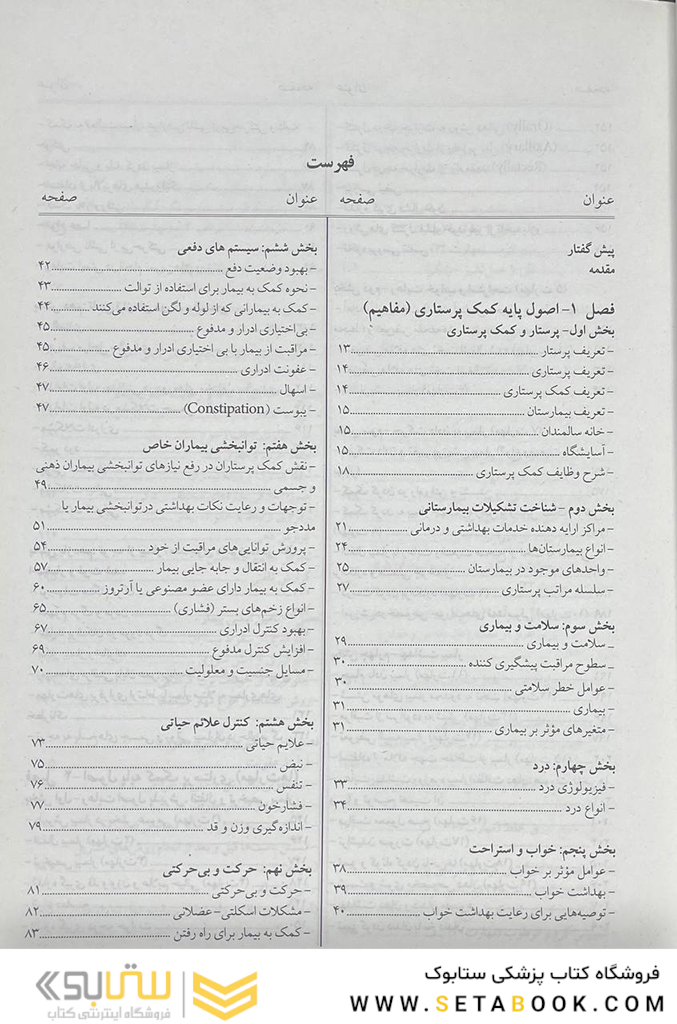 فهرست
عنوان صفحه
پیش گفتار
مقدمه
فصل ۱- اصول پایه کمک پرستاری (مفاهیم)
بخش اول- پرستار و کمک پرستاری
- تعریف پرستار ..... ۱۳
- تعریف پرستاری ..... ۱۴
- تعریف کمک پرستاری ..... ۱۴
- تعریف بیمارستان ..... ۱۵
- خانه سالمندان ..... ۱۵
- آسایشگاه ..... ۱۵
- شرح وظایف کمک پرستاری ..... ۱۸
بخش دوم - شناخت تشکیلات بیمارستانی
- مراکز ارایه دهنده خدمات بهداشتی و درمانی ..... ۲۱
- انواع بیمارستان‌ها ..... ۲۴
- واحدهای موجود در بیمارستان ..... ۲۵
- سلسله مراتب پرستاری ..... ۲۷
بخش سوم: سلامت و بیماری
_ سلامت و بیماری ..... ۲۹
_ سطوح مراقبت پیشگیری کننده ..... ۳۰
- عوامل خطر سلامتی ..... ۳۰
- بیماری ..... ۳۱
- متغیرهای مؤثر بر بیماری ..... ۳۱
بخش چهارم: درد
- فیزیولوژی درد ..... ۳۳
- انواع درد ..... ۳۴
بخش پنجم: خواب و استراحت
- عوامل مؤثر بر خواب ..... ۳۸
- بهداشت خواب ..... ۳۹
- توصیه‌هایی برای رعایت بهداشت خواب ..... ۴۰
عنوان صفحه
بخش ششم: سیستم های دفعی
- بهبود وضعیت دفع ..... ۴۲
- نحوه کمک به بیمار برای استفاده از توالت ..... ۴۳
- کمک به بیمارانی که از لوله و لگن استفاده می‌کنند ..... ۴۴
- بی‌اختیاری ادرار و مدفوع ..... ۴۵
- مراقبت از بیمار با بی اختیاری ادرار و مدفوع ..... ۴۵
- عفونت ادراری ..... ۴۶
- اسهال ..... ۴۷
- یبوست (Constipation) ..... ۴۷
بخش هفتم: توانبخشی بیماران خاص
- نقش کمک پرستاران در رفع نیازهای توانبخشی بیماران ذهنی
و جسمی ..... ۴۹
- توجهات و رعایت نکات بهداشتی درتوانبخشی بیمار یا
مددجو ..... ۵۱
- پرورش توانایی‌های مراقبت از خود ..... ۵۴
- کمک به انتقال و جابه جایی بیمار ..... ۵۷
- کمک به بیمار دارای عضو مصنوعی یا آرتروز ..... ۶۰
- انواع زخم‌های بستر (فشاری) ..... ۶۵
- بهبود کنترل ادراری ..... ۶۷
- افزایش کنترل مدفوع ..... ۶۹
- مسایل جنسیت و معلولیت ..... ۷۰
بخش هشتم: کنترل علائم حیاتی
- علایم حیاتی ..... ۷۳
- نبض ..... ۷۵
- تنفس ..... ۷۶
- فشارخون ..... ۷۷
- اندازه‌گیری وزن و قد ..... ۷۹
بخش نهم: حرکت و بی‌حرکتی
- حرکت و بی‌حرکتی ..... ۸۱
- مشکلات اسکلتی- عضلانی ..... ۸۲
- کمک به بیمار برای راه رفتن ..... ۸۳
فروشگاه کتاب پزشکی ستابوک
WWW.SETABOOK.COM
ستابوک
فروشگاه اینترنتی کتاب